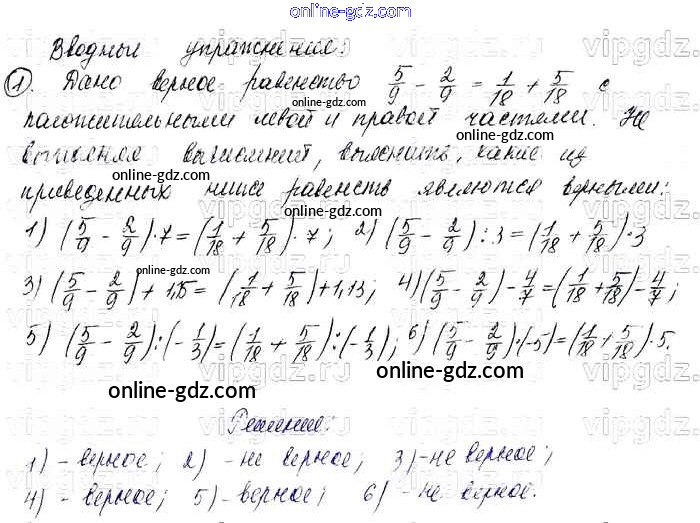 online-gdz.com
Вводные упражнения:
1. Дано верное равенство 5/9 - 2/9 = 1/18 + 5/18 с
online-gdz.com
положительными левой и правой частями. Не
выполняя вычислений, выяснить, какие из
online-gdz.com
приведенных ниже равенств являются верными:
online-gdz.com
1) (5/9 - 2/9)·7=(1/18 + 5/18)·7; 2) (5/9 - 2/9):3=(1/18 + 5/18)·3
online-gdz.com
3) (5/9 - 2/9)+1,15=(1/18 + 5/18)+1,13; 4) (5/9 - 2/9)-4/7=(1/18+5/18)-4/7;
online-gdz.com
5) (5/9 - 2/9):(-1/3)=(1/18 + 5/18):(-1/3); 6) (5/9 - 2/9)·(-5)=(1/18+5/18)·5.
online-gdz.com
online-gdz.com
Решение:
1) - верное; 2) - не верное; 3) - не верное;
4) - верное; 5) - верное; 6) - не верное.